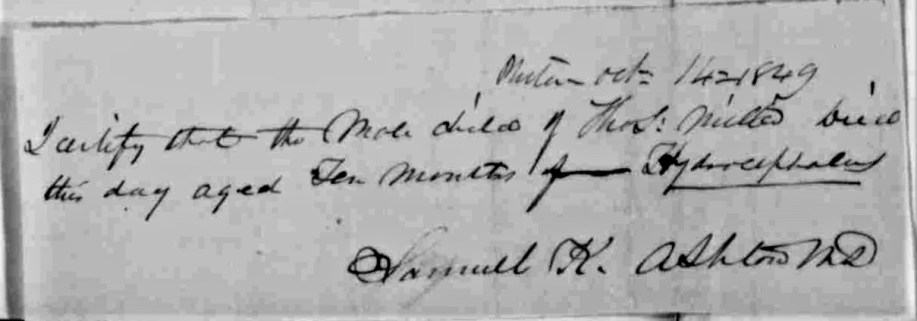 Oct= 14=1849
I certify that the Male child of Thos: Miller Died
this day aged Ten Months from Hydrocephalus
Samuel K. Ashton MD